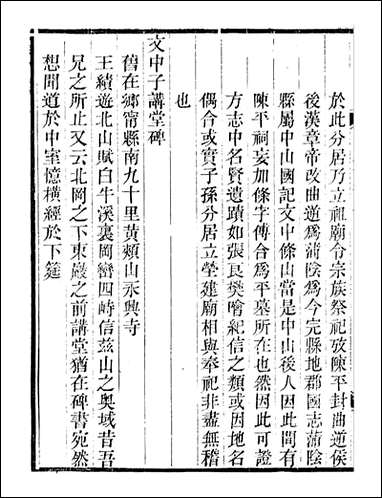 於此分居乃立祖廟令宗族祭祀攷陳平封曲逆侯
後漢章帝改曲逆爲蒲陰爲今完縣地郡國志蒲陰
縣屬中山國記文中條山當是中山後人因此閒有
陳平祠妄加條字傅合爲平墓所在也然因此可證
方志中名賢遺蹟如張良樊噲紀信之類或因地名
偶合或實子孫分居立塋建廟相與奉祀非盡無稽
也
文中子講堂碑
舊在鄉甯縣南九十里黃頰山永興寺
王績遊北山賦白牛溪裏岡巒四峙信茲山之奥域昔吾
兄之所止又云北岡之下東巖之前講堂猶在碑書宛然
想聞道於中室憶橫經於下筵